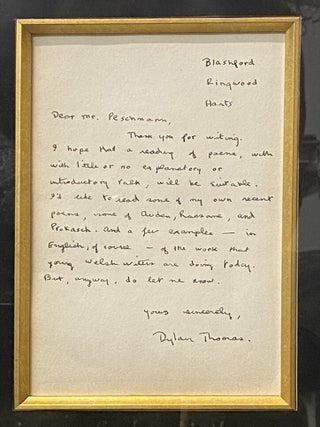 Blashford
Ringwood
Hants
Dear Mr. Peschmann,
Thank you for writing.
I hope that a reading of poems, with
with little or no explanatory or
introductory talk, will be suitable.
I'd like to read some of my own recent
poems, some of Auden, Ransome, and
Prokosch. And a few examples — in
English, of course — of the work that
young Welsh writers are doing today.
But, anyway, do let me know.
Yours sincerely,
Dylan Thomas.